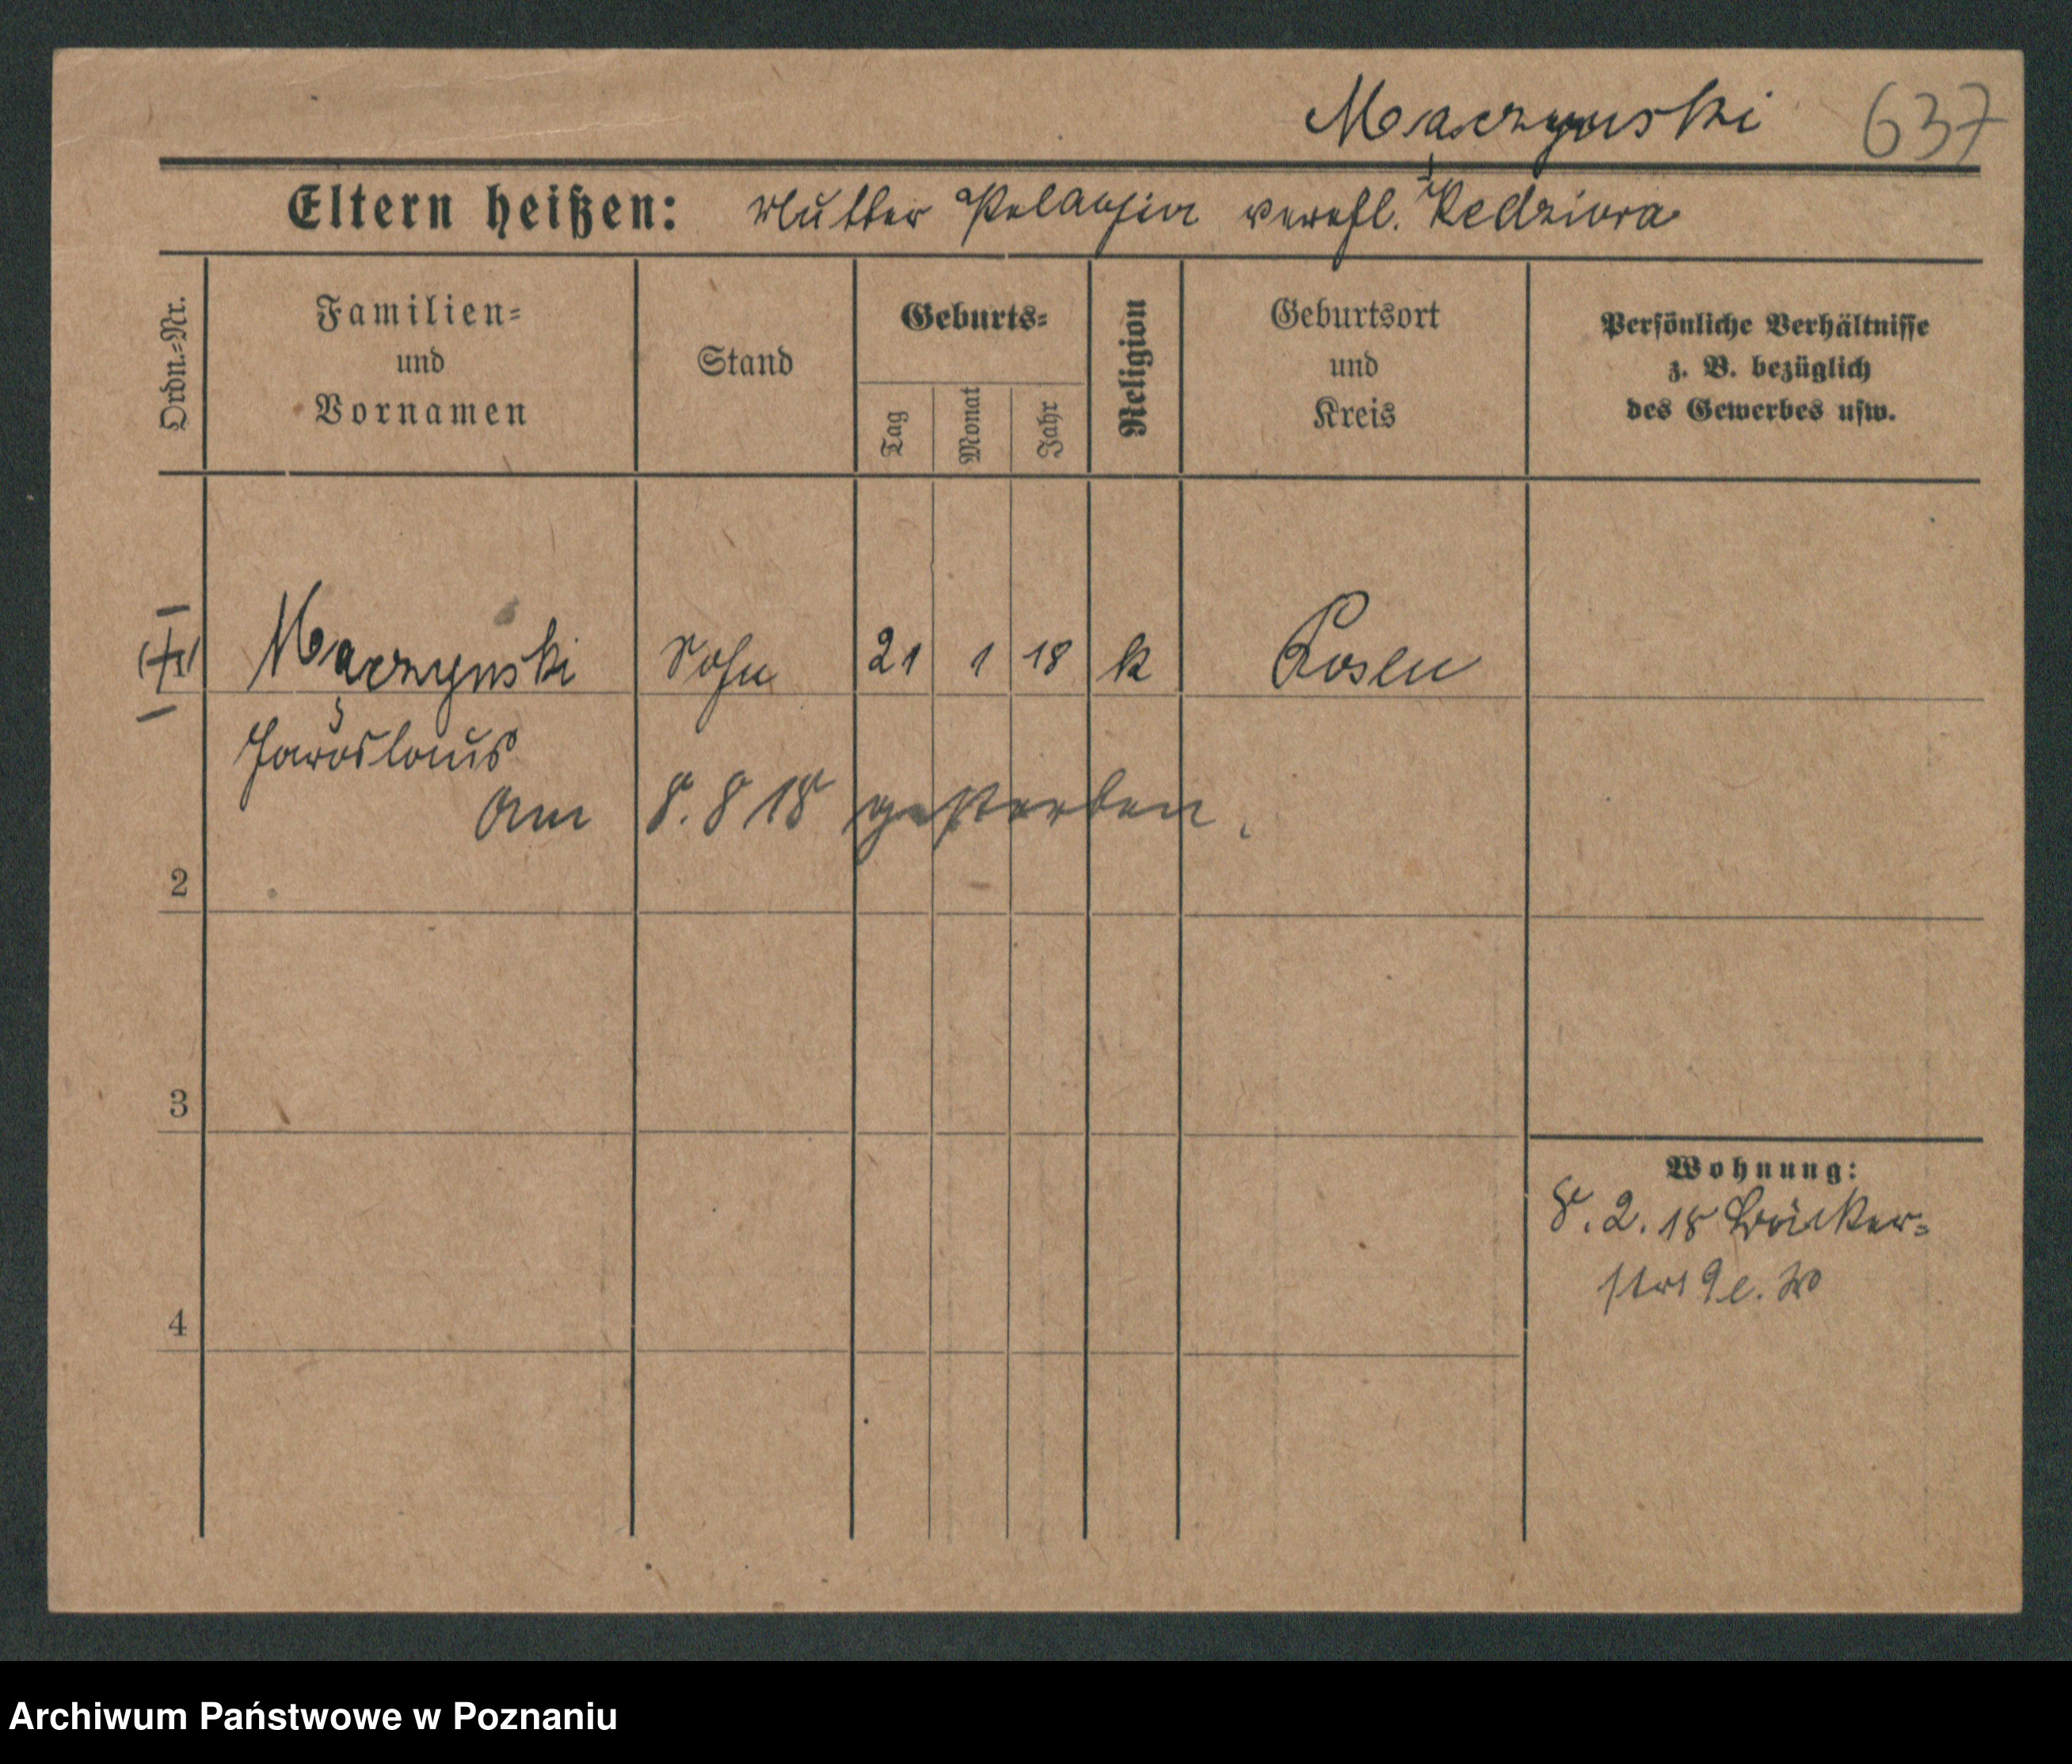 Mączynski 637
Eltern heißen: Mutter Pelagia verehl. Kedziora
Ordn.-Nr.
Familien-
und
Vornamen
Stand
Geburts-
Tag
Monat
Jahr
Religion
Geburtsort
und
Kreis
Persönliche Verhältnisse
z. B. bezüglich
des Gewerbes usw.
Mączynski Sohn 21 1 18 k Posen
Jaroslaus
am 8. 8 18 gestorben.
2
3
4
Wohnung:
8. 2. 18 Bäcker-
str 9
Archiwum Państwowe w Poznaniu